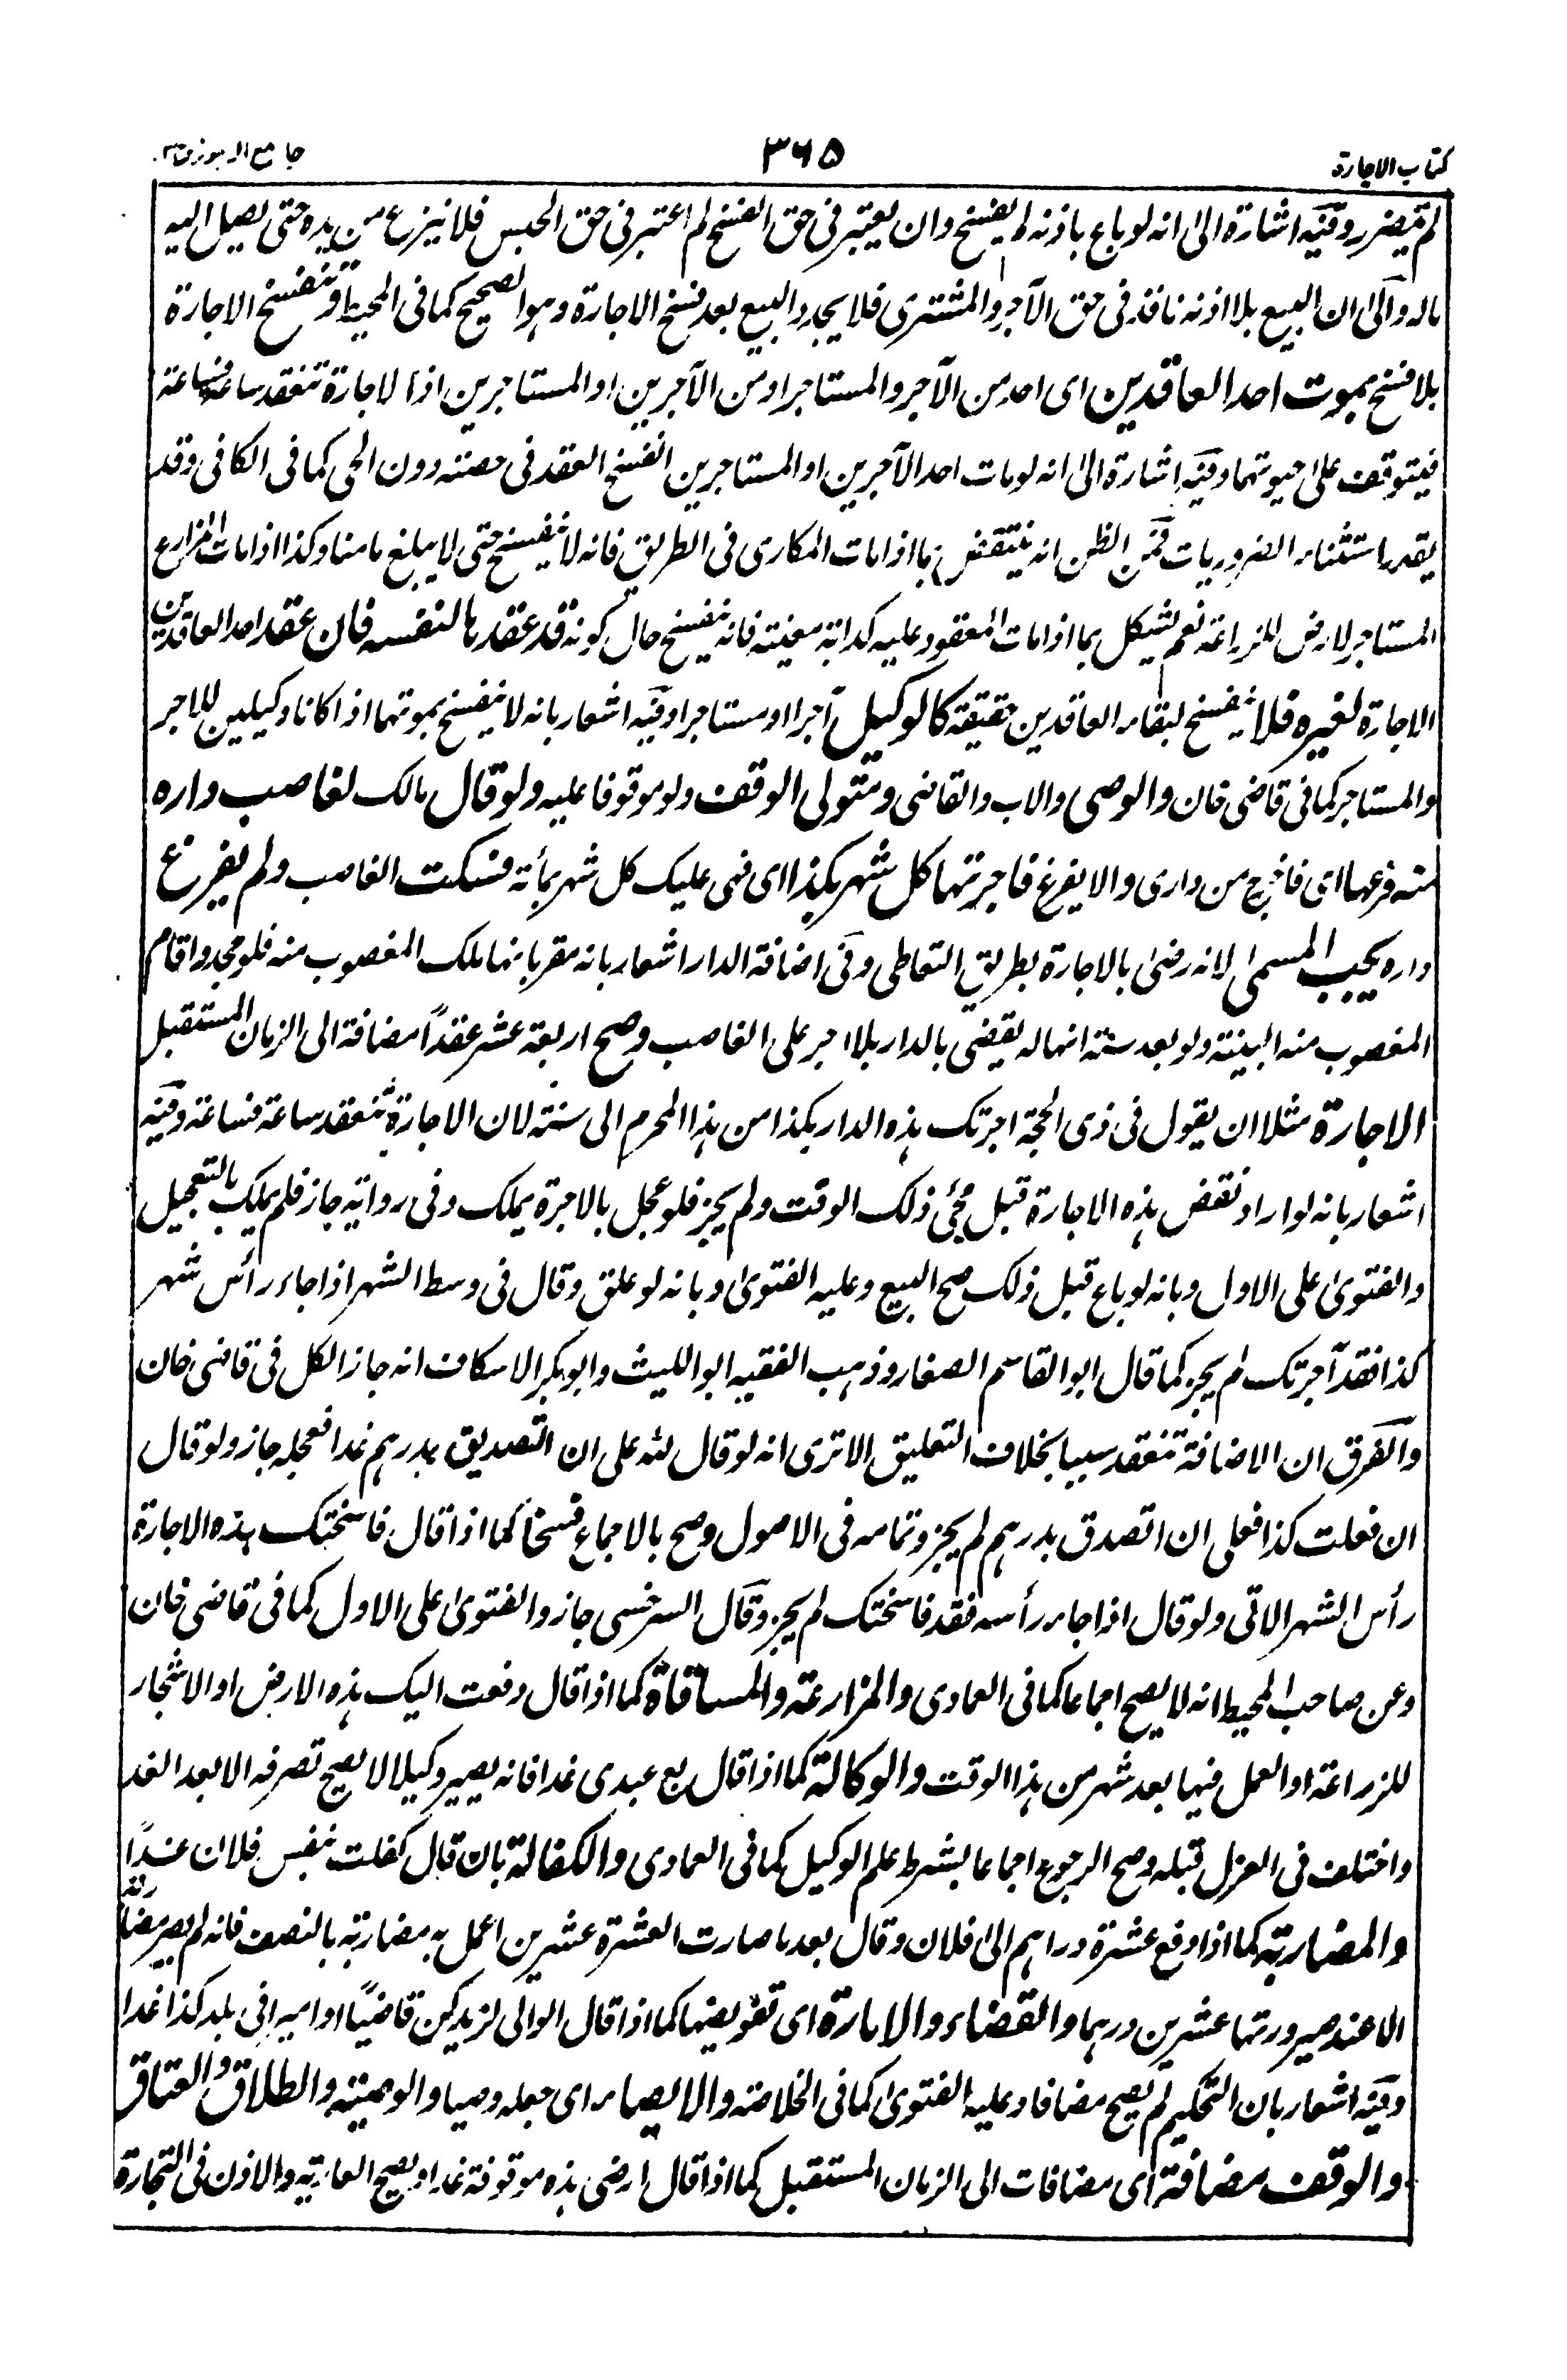 كتاب الاجارة
٣٦٥
جامع الرموز ج ٣
لم يتضرر وفيه اشارة الى انه لو باع باذنه لم ينفسخ وان يعتبر في حق الفسخ لم اعتبر في حق الحبس فلا ينزع من يده حتى يصل اليه
ماله والى ان البيع بلا اذنه نافذ في حق الآجر والمشتري فلا يجدد البيع بعد فسخ الاجارة وهو الصحيح كما في المحيط وتنفسخ الاجارة
بلا فسخ بموت احد العاقدين اى احد من الآجر والمستاجر او من الآجرين او المستاجرين اذ الاجارة تنعقد ساعة فساعة
فيتوقف على حيوتهما وفيه اشارة الى انه لو مات احد الآجرين او المستاجرين انفسخ العقد في حصته دون الحي كما في الكافي وقد
يقدر استثناء الضروريات فمن الظن انه ينتقض بما اذا مات المكاري في الطريق فانه لا ينفسخ حتى لا يبلغ مامنا وكذا اذا مات المزارع
المستاجر لارض للزراعة نعم يشكل بما اذا مات المعقود عليه كدابة معينة فانه ينفسخ حال كونه قد عقدها لنفسه فان عقد احد العاقدين
الاجارة لغيره فلا ينفسخ لبقاء العاقدين حقيقة كالوكيل آجرا او مستاجرا وفيه اشعار بانه لا ينفسخ بموتهما اذا كانا وكيلين للاجر
والمستاجر كما في قاضي خان والوصي والاب والقاضي ومتولي الوقف ولو موقوفا عليه ولو قال مالك لغاصب داره
منه فرغها اى فاخرج من داري والا يفرغ فاجرتها كل شهر بكذا اى فهي عليك كل شهر بمأته فسكت الغاصب ولم يفرغ
داره يجب المسمى لانه رضى بالاجارة بطريق التعاطي وفي اضافة الدار اشعار بانه مقر بانها ملك المغصوب منه فلو جحد واقام
المغصوب منه البينة ولو بعد سنة انها له يقضى بالدار بلا اجر على الغاصب وصح اربعة عشر عقدًا مضافة الى الزمان المستقبل
الاجارة مثلا ان يقول في ذى الحجة اجرتك هذه الدار بكذا من هذا المحرم الى سنة لان الاجارة تنعقد ساعة فساعة وفيه
اشعار بانه لو اراد نقض هذه الاجارة قبل مجئ ذلك الوقت ولم يجز فلو عجل بالاجرة يملك وفي رواية جاز فلم يملك بالتعجيل
والفتوى على الاول وبانه لو باع قبل ذلك صح البيع وعليه الفتوى وبانه لو علق وقال في وسط الشهر اذا جاء رأس شهر
كذا فقد آجرتك لم يجز كما قال ابو القاسم الصفار وذهب الفقيه ابو الليث وابوبكر الاسكاف انه جاز الكل في قاضي خان
والفرق ان الاضافة تنعقد سببا بخلاف التعليق الا ترى انه لو قال لله على ان التصديق بدرهم غدا فعجله جاز ولو قال
ان فعلت كذا فعلى ان اتصدق بدرهم لم يجز وتمامه في الاصول وصح بالاجماع فسخا كما اذا قال فاسختك هذه الاجارة
رأس الشهر الاتى ولو قال اذا جاء رأسه فقد فاسختك لم يجز وقال السرخسي جاز والفتوى على الاول كما في قاضي خان
وعن صاحب المحيط انه لا يصح اجماعا كما في العمادي والمزارعة والمساقاة كما اذا قال دفعت اليك هذه الارض او الاشجار
للزراعة او العمل فيها بعد شهر من هذا الوقت والوكالة كما اذا قال بع عبدي غدا فانه يصير وكيلا لا يصح تصرفه الا بعد الغد
واختلف في العزل قبله وصح الرجوع اجماعا بشرط علم الوكيل كما في العمادي والكفالة بان قال كفلت بنفس فلان غدًا
والمضاربة كما اذا دفع عشرة دراهم الى فلان وقال بعد ما صارت العشرة عشرين اعمل به مضاربة بالنصف فانه لم يصر مضاربة
الا عند صيرورتها عشرين درهما والقضاء والامارة اى تفويضهما كما اذا قال الوالي لزيد كن قاضيًا او اميرا في بلد كذا غدا
وفيه اشعار بان التحكيم لم يصح مضافا وعليه الفتوى كما في الخلاصة والايصاء اى جعله وصيا والوصية والطلاق والعتاق
والوقف مضافة اى مضافات الى الزمان المستقبل كما اذا قال ارضى هذه موقوفة غدا ويصح العارية والاذن في التجارة